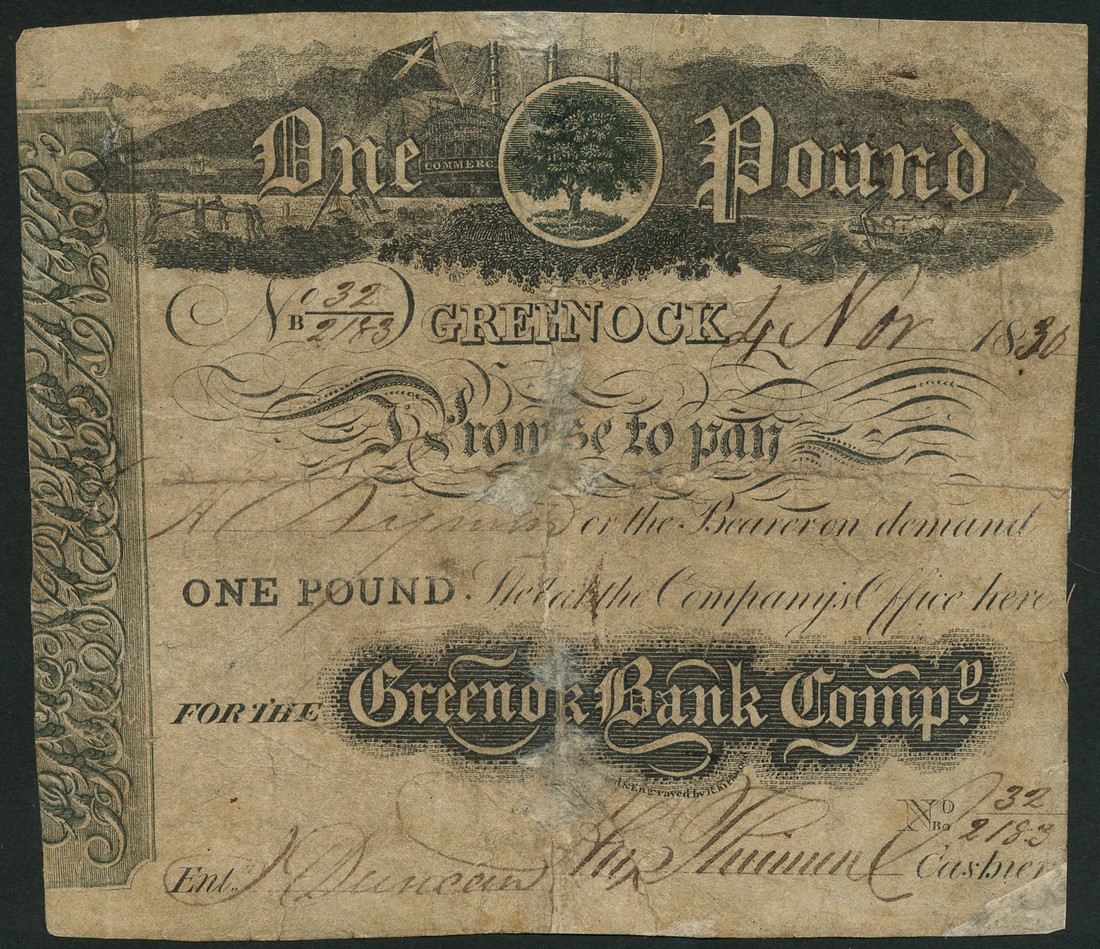 One Pound
COMMERC
No 32
B 2183 GREENOCK 4 Nov 1830
I Promise to pay
or the Bearer on demand
ONE POUND. Ster. at the Company's Office here
FOR THE Greenock Bank Compy.
Engraved by
No 32
Bo 2183
Ent. J Duncan Cashier